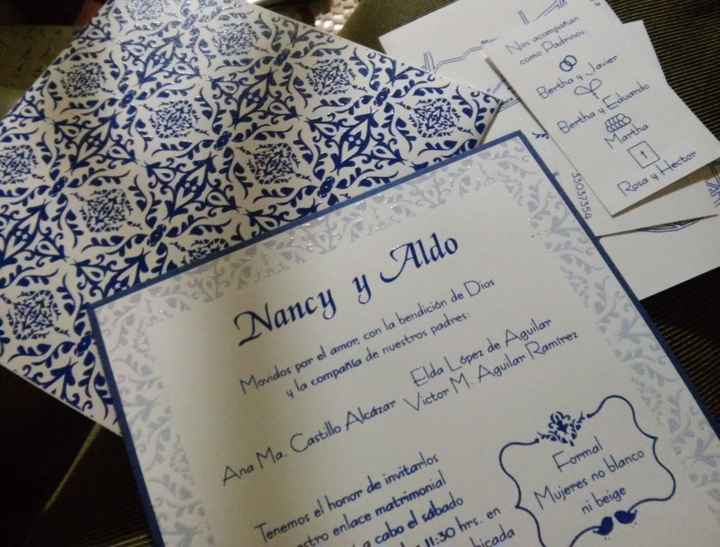 Nancy y Aldo
Movidos por el amor, con la bendición de Dios
y la compañía de nuestros padres:
Ana Ma. Castillo Alcázar
Elda López de Aguilar
Victor M. Aguilar Ramírez
Tenemos el honor de invitarlos
enlace matrimonial
cabo el sábado
11:30 hrs. en
Formal
Mujeres no blanco
ni beige
Nos acompañan
como Padrinos:
Bertha y Javier
Bertha y Eduardo
Martha
Rosa y Hector
33037354